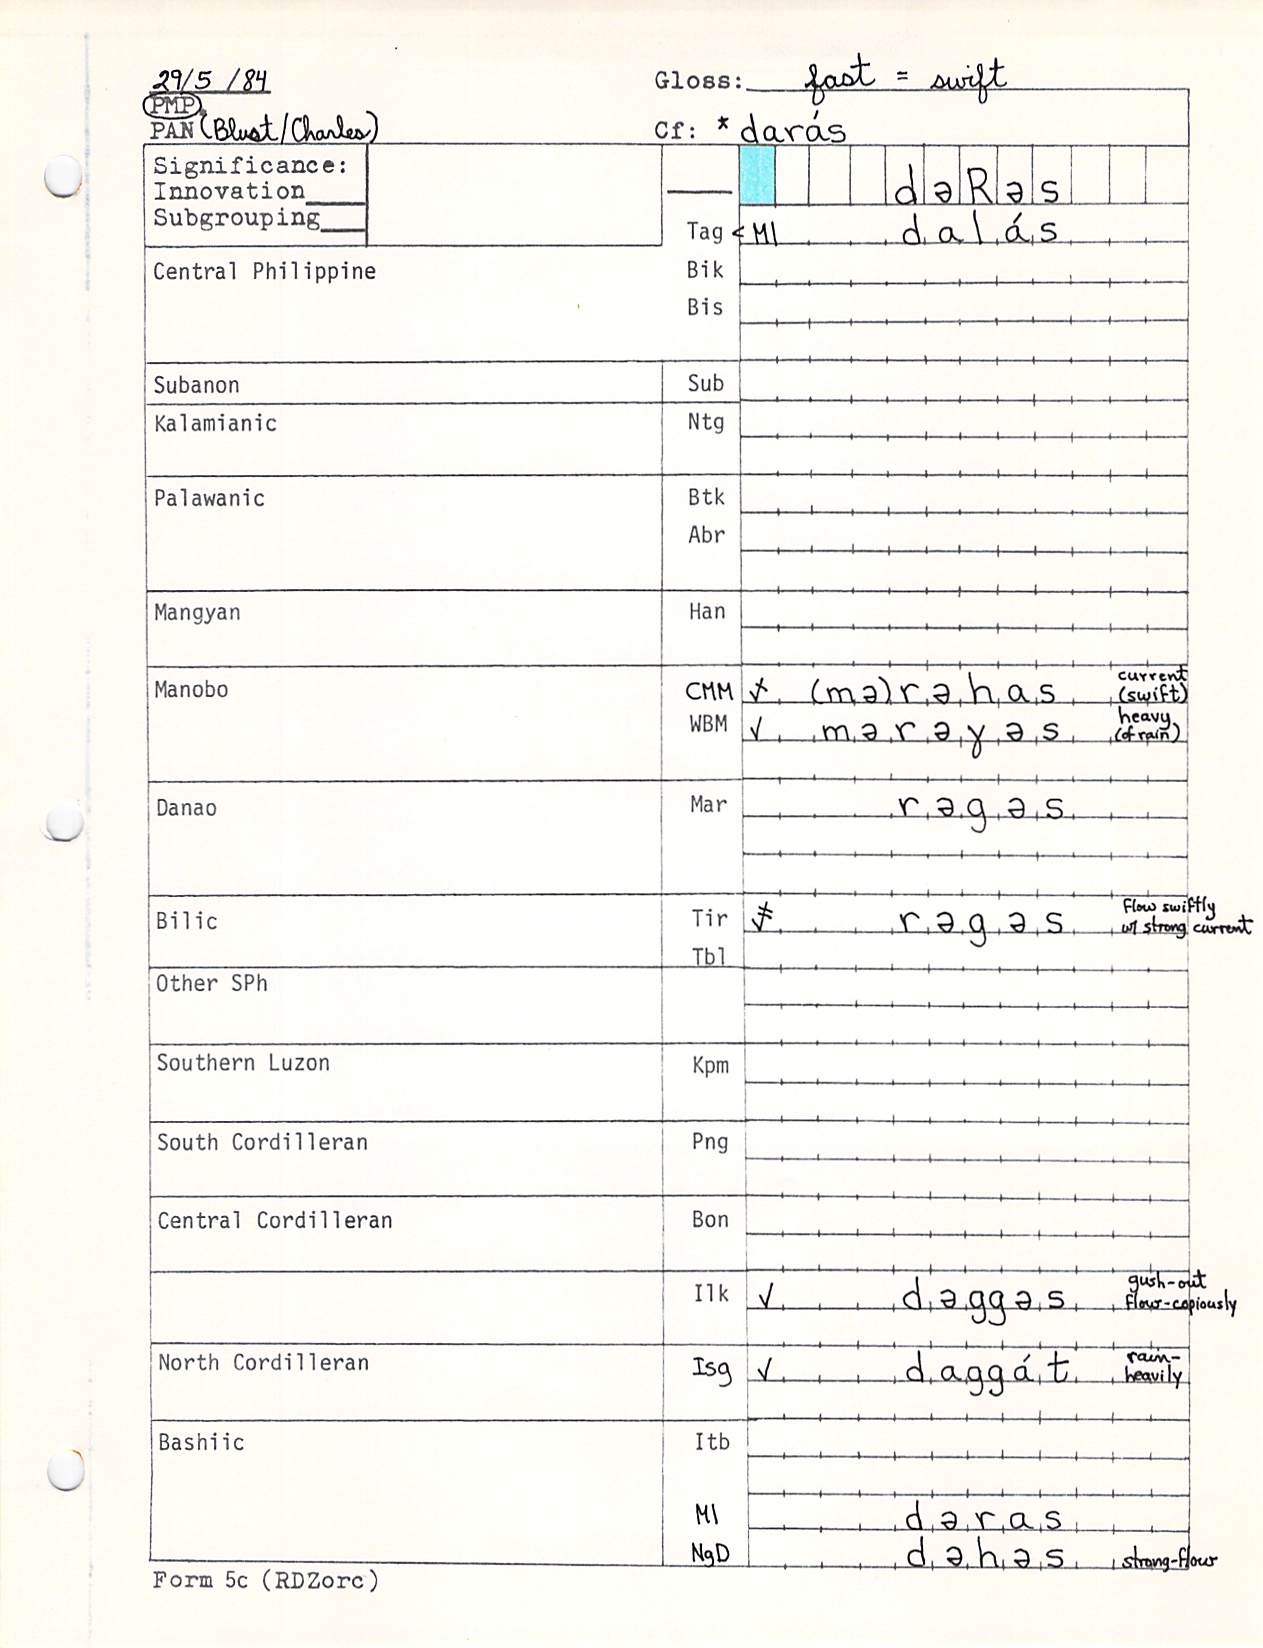 29/5/84 Gloss: fast = swift
PMP
PAN (Blust/Charles) Cf: *darás
Significance:
Innovation____ ____ dəRəs
Subgrouping____
Tag < Ml dalás
Central Philippine Bik
Bis
Subanon Sub
Kalamianic Ntg
Palawanic Btk
Abr
Mangyan Han
Manobo CMM (mə)rəhas current (swift)
WBM ✓ mərəɣəs heavy (of rain)
Danao Mar rəgəs
Bilic Tir rəgəs flow swiftly w/ strong current
Tbl
Other SPh
Southern Luzon Kpm
South Cordilleran Png
Central Cordilleran Bon
Ilk ✓ dəggəs gush-out flow-copiously
North Cordilleran Isg ✓ daggát rain-heavily
Bashiic Itb
Ml dəras
NgD dəhəs strong-flow
Form 5c (RDZorc)